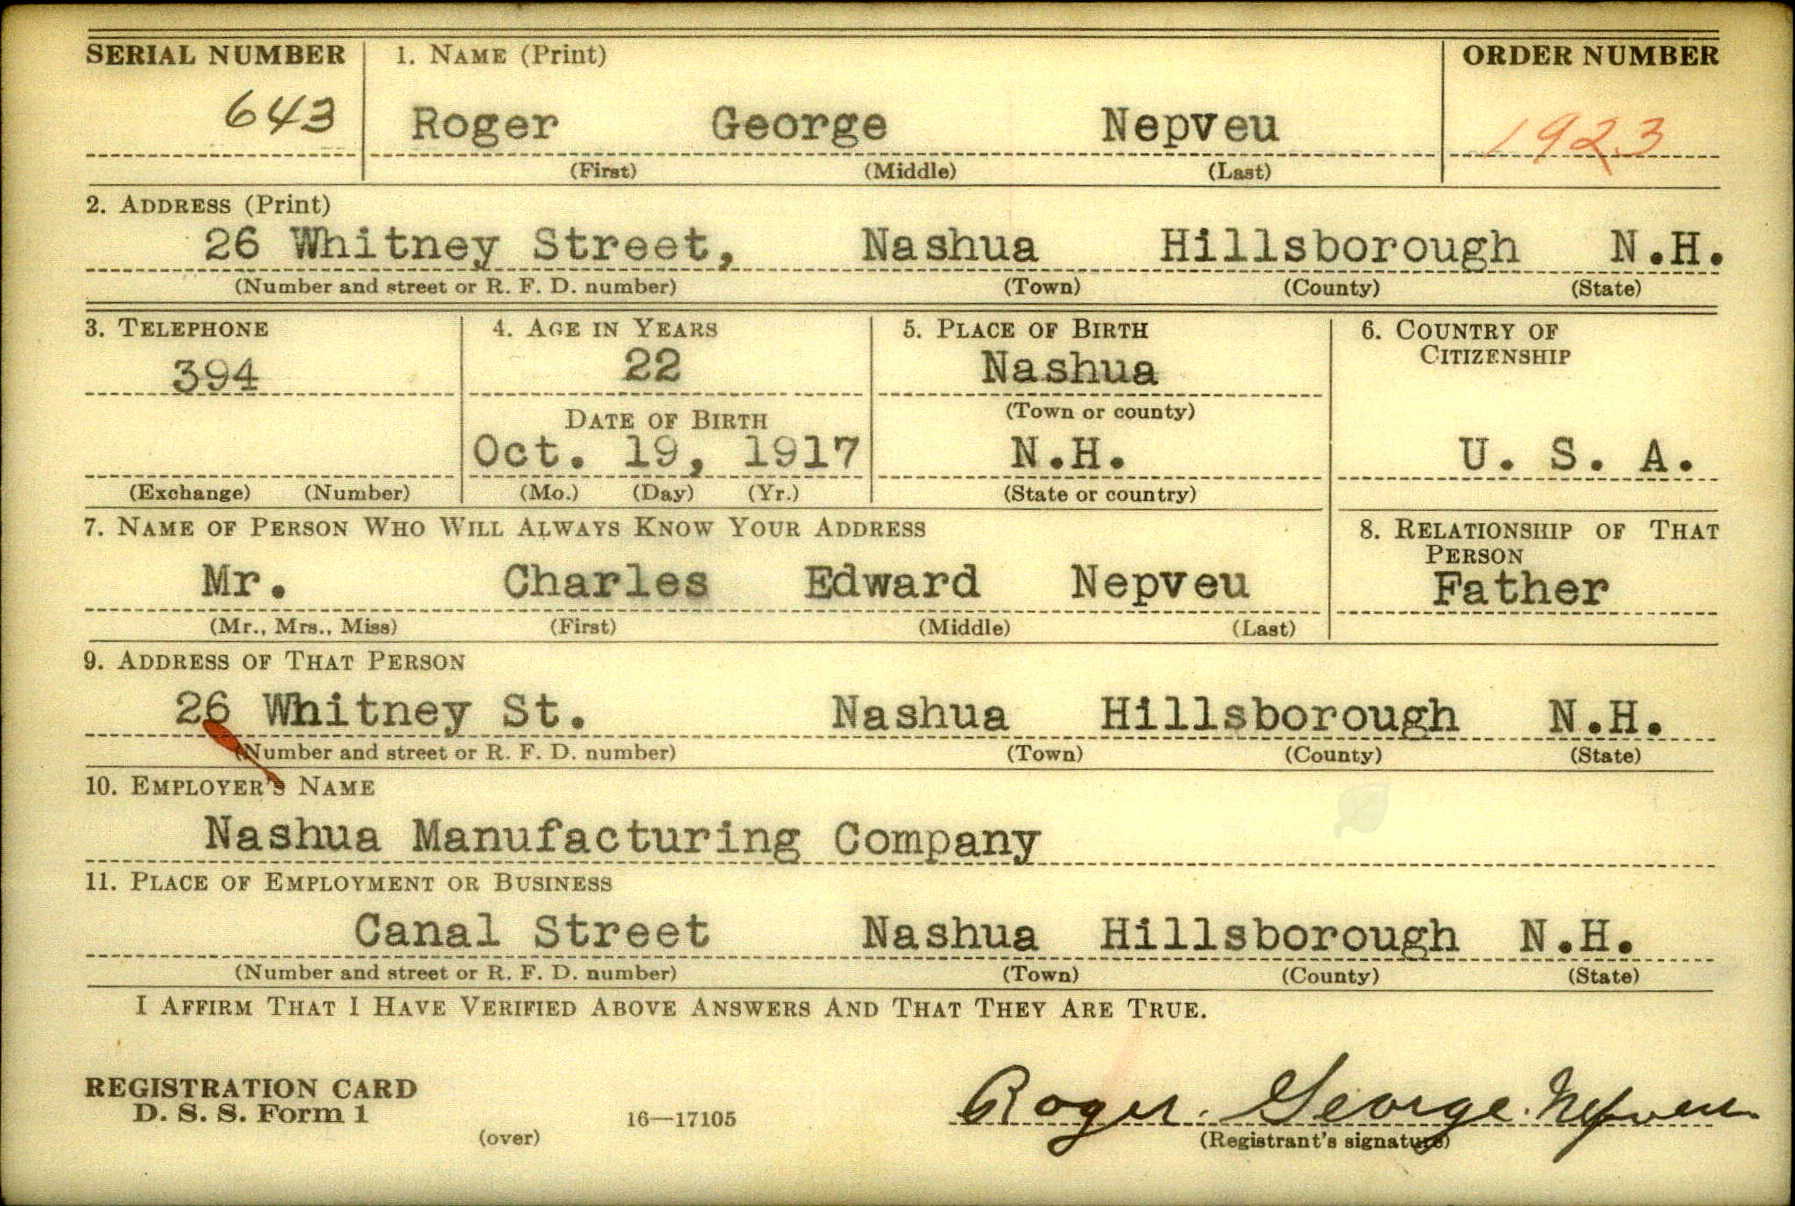 SERIAL NUMBER 1. NAME (Print) ORDER NUMBER
643 Roger George Nepveu 1923
(First) (Middle) (Last)
2. ADDRESS (Print)
26 Whitney Street, Nashua Hillsborough N.H.
(Number and street or R. F. D. number) (Town) (County) (State)
3. TELEPHONE 4. AGE IN YEARS 5. PLACE OF BIRTH 6. COUNTRY OF
CITIZENSHIP
394 22 Nashua
DATE OF BIRTH (Town or county)
Oct. 19, 1917 N.H. U. S. A.
(Exchange) (Number) (Mo.) (Day) (Yr.) (State or country)
7. NAME OF PERSON WHO WILL ALWAYS KNOW YOUR ADDRESS 8. RELATIONSHIP OF THAT
PERSON
Mr. Charles Edward Nepveu Father
(Mr., Mrs., Miss) (First) (Middle) (Last)
9. ADDRESS OF THAT PERSON
26 Whitney St. Nashua Hillsborough N.H.
(Number and street or R. F. D. number) (Town) (County) (State)
10. EMPLOYER'S NAME
Nashua Manufacturing Company
11. PLACE OF EMPLOYMENT OR BUSINESS
Canal Street Nashua Hillsborough N.H.
(Number and street or R. F. D. number) (Town) (County) (State)
I AFFIRM THAT I HAVE VERIFIED ABOVE ANSWERS AND THAT THEY ARE TRUE.
REGISTRATION CARD
D. S. S. Form 1 16—17105 Roger George Nepveu
(over) (Registrant's signature)